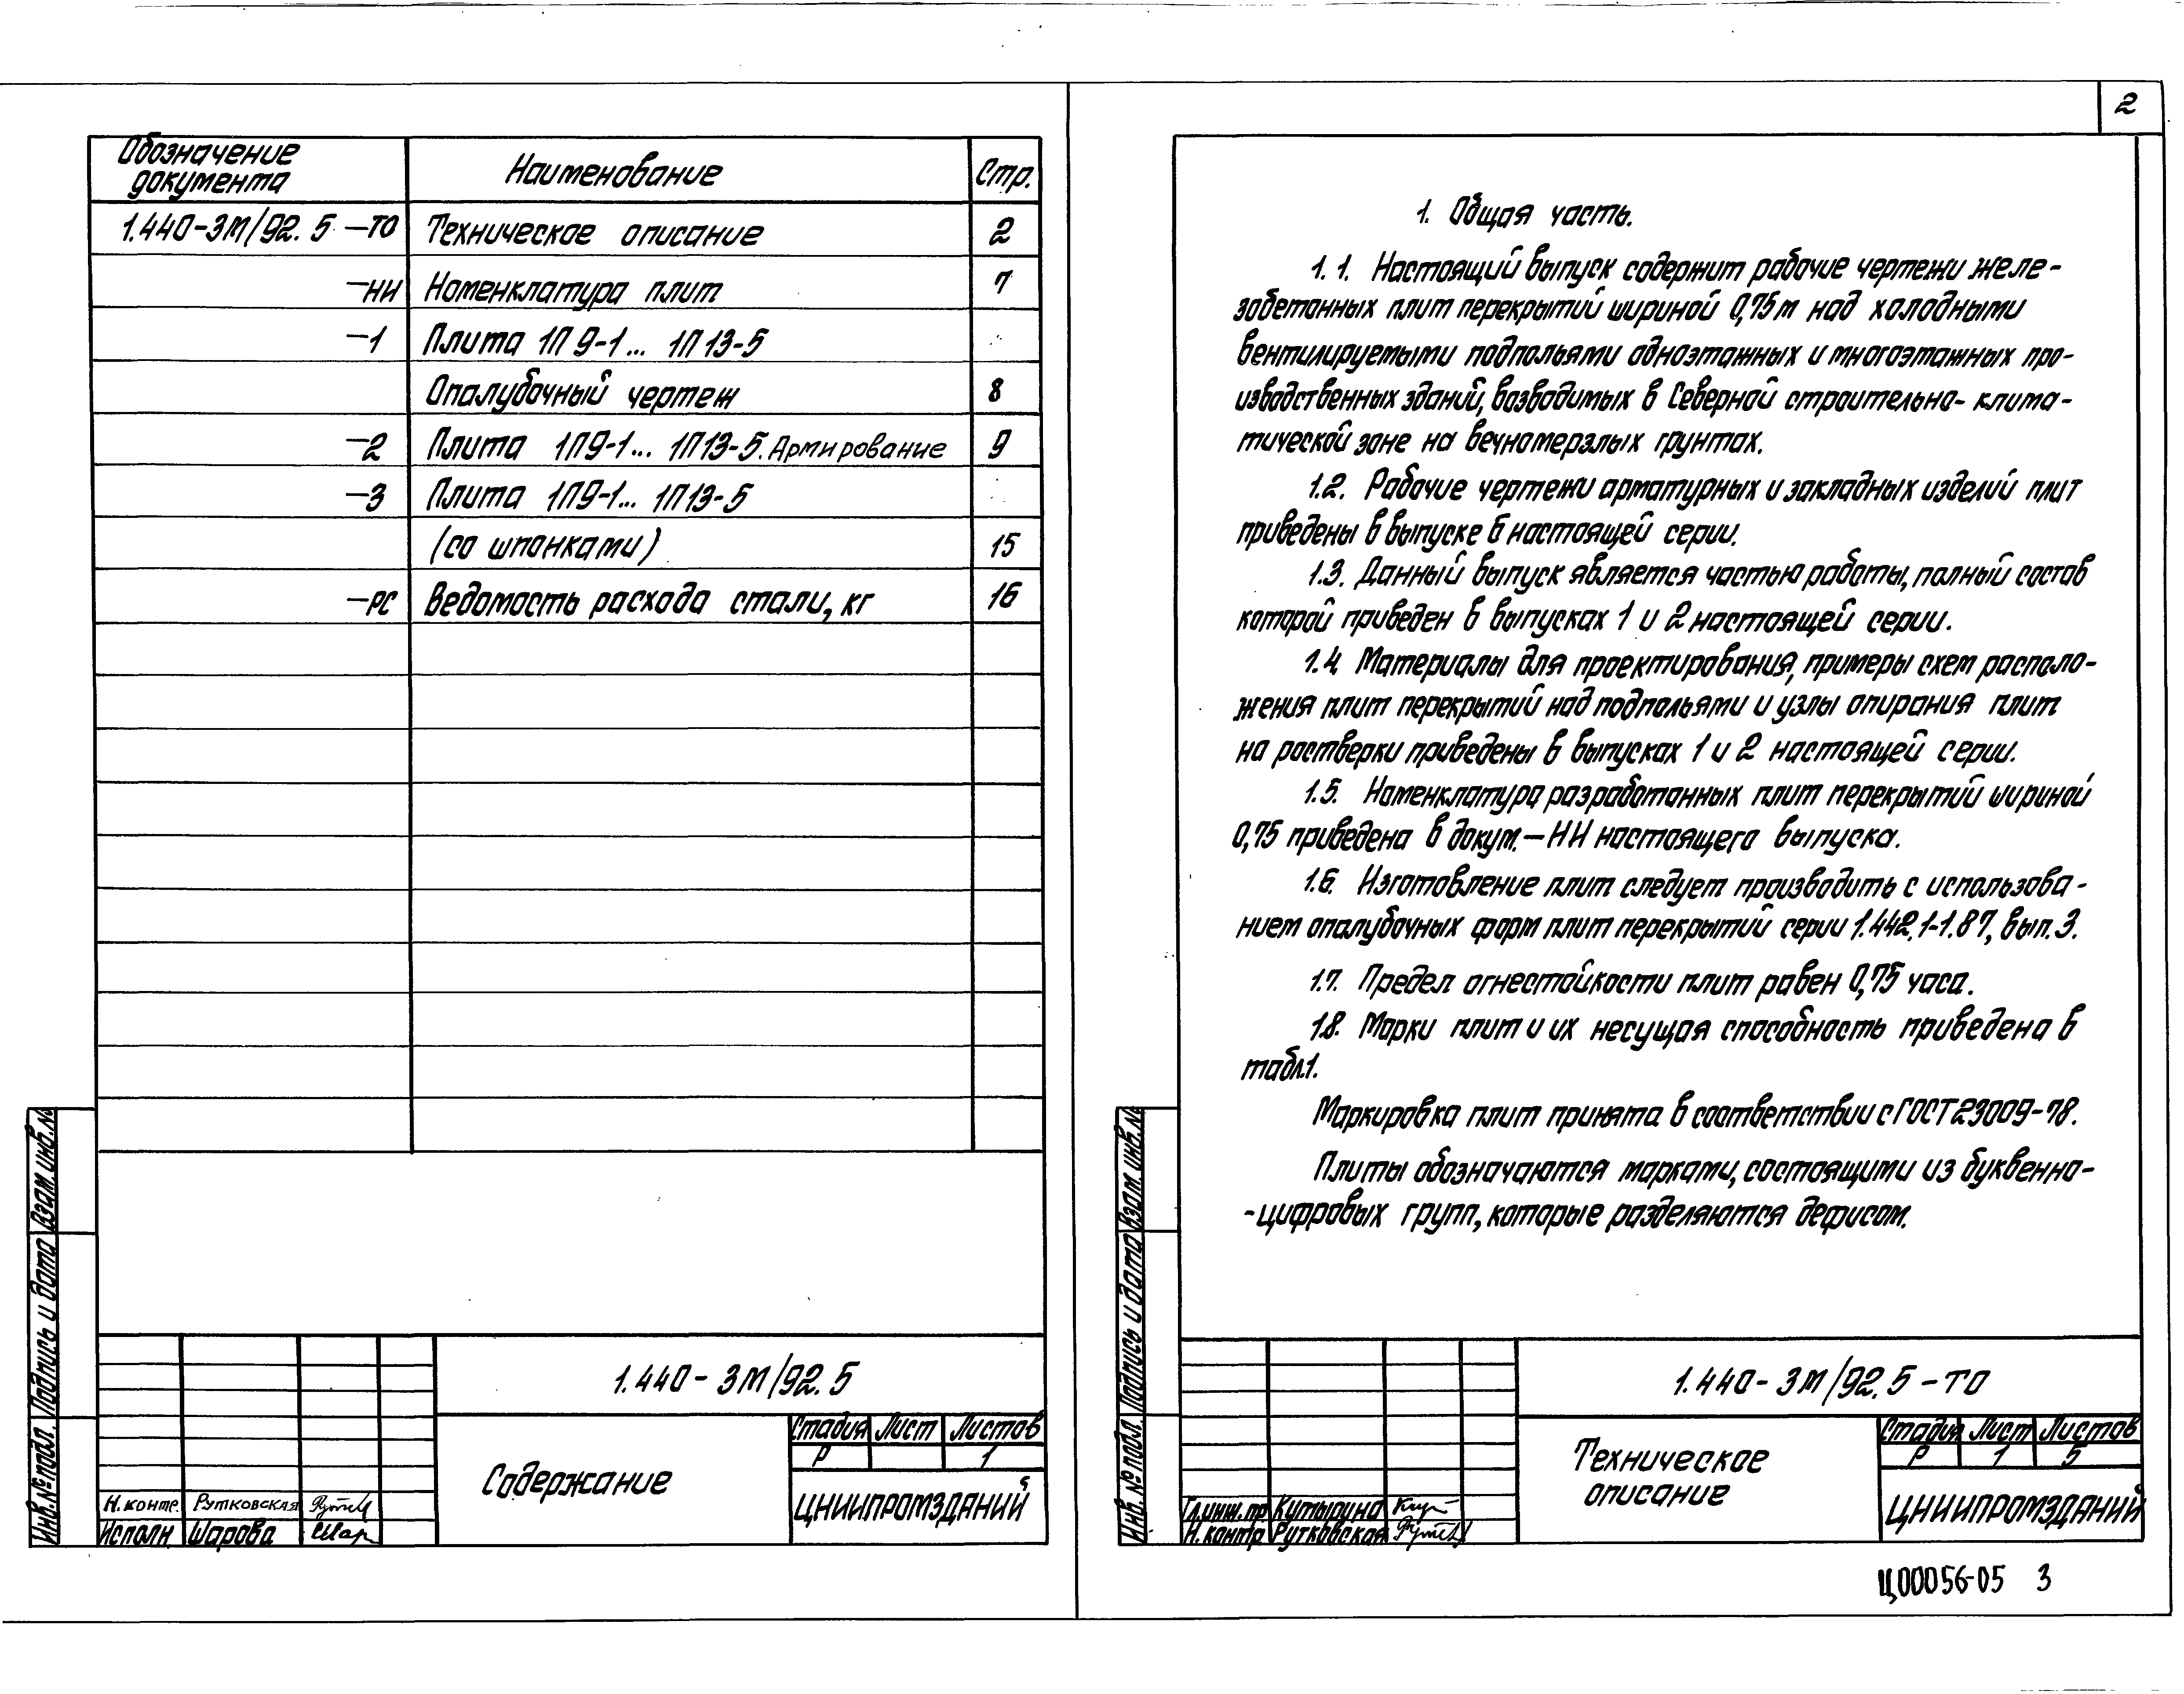 Обозначение документа Наименование Стр.
1.440-3М/92.5 -ТО Техническое описание 2
-НИ Номенклатура плит 7
-1 Плита 1П9-1... 1П13-5
Опалубочный чертеж 8
-2 Плита 1П9-1... 1П13-5. Армирование 9
-3 Плита 1П9-1... 1П13-5
(со шпонками) 15
-РС Ведомость расхода стали, кг 16
Взам. инв. №
Подпись и дата
Инв. № подл.
1.440-3М/92.5
Содержание
Стадия Лист Листов
Р 1
ЦНИИПРОМЗДАНИЙ
Н. контр. Рутковская
Исполн. Шарова
2
1. Общая часть.
1.1. Настоящий выпуск содержит рабочие чертежи желе-
зобетонных плит перекрытий шириной 0,75м над холодными
вентилируемыми подпольями одноэтажных и многоэтажных про-
изводственных зданий, возводимых в Северной строительно-клима-
тической зоне на вечномерзлых грунтах.
1.2. Рабочие чертежи арматурных и закладных изделий плит
приведены в выпуске 6 настоящей серии.
1.3. Данный выпуск является частью работы, полный состав
которой приведен в выпусках 1 и 2 настоящей серии.
1.4. Материалы для проектирования, примеры схем располо-
жения плит перекрытий над подпольями и узлы опирания плит
на ростверки приведены в выпусках 1 и 2 настоящей серии.
1.5. Номенклатура разработанных плит перекрытий шириной
0,75 приведена в докум. -НИ настоящего выпуска.
1.6. Изготовление плит следует производить с использова-
нием опалубочных форм плит перекрытий серии 1.442.1-1.87, вып. 3.
1.7. Предел огнестойкости плит равен 0,75 часа.
1.8. Марки плит и их несущая способность приведена в
табл.1.
Маркировка плит принята в соответствии с ГОСТ 23009-78.
Плиты обозначаются марками, состоящими из буквенно-
-цифровых групп, которые разделяются дефисом.
Взам. инв. №
Подпись и дата
Инв. № подл.
1.440-3М/92.5-ТО
Техническое
описание
Стадия Лист Листов
Р 1 5
ЦНИИПРОМЗДАНИЙ
Гл. инж. пр. Кутырина
Н. контр. Рутковская
Ц00056-05 3